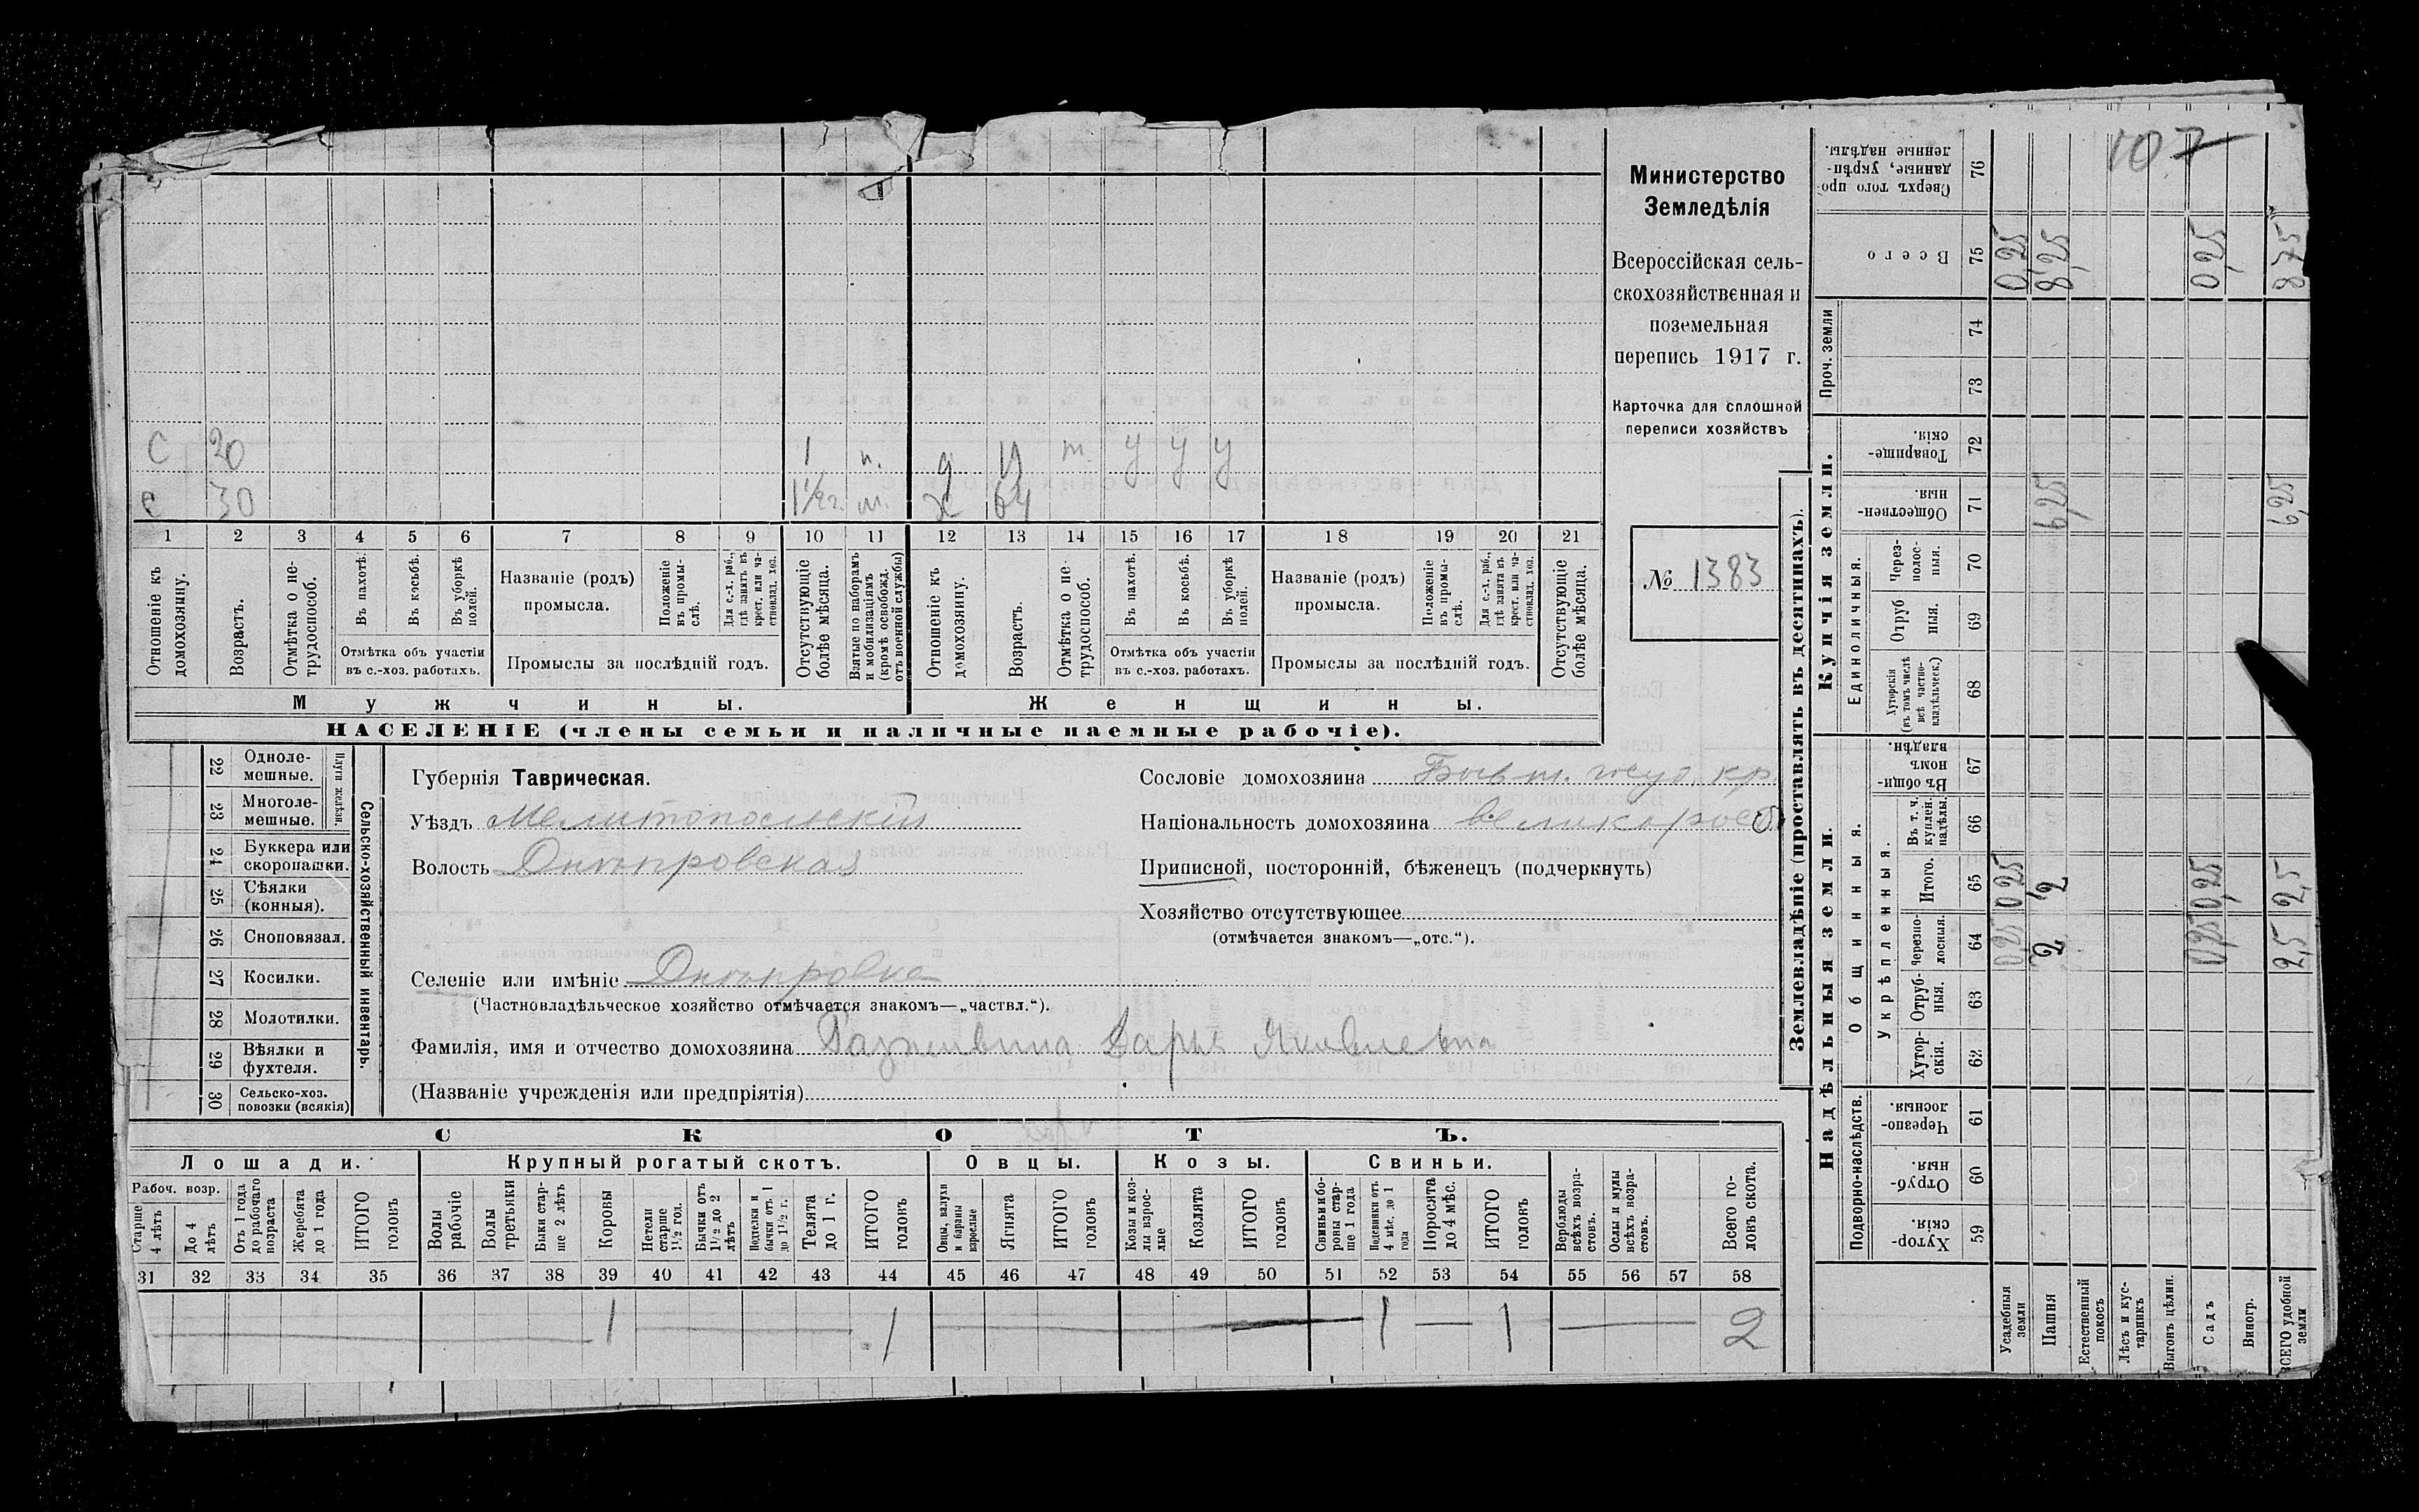 107
С 20 1 п. д 11 т. у у у
с 30 1½ г. т. х 64
1 2 3 4 5 6 7 8 9 10 11 12 13 14 15 16 17 18 19 20 21
Отношеніе къ домохозяину.
Возрастъ.
Отмѣтка о нетрудоспособ.
Въ пахотѣ.
Въ косьбѣ.
Въ уборкѣ полей.
Отмѣтка объ участіи
въ с.-хоз. работахъ.
Названіе (родъ)
промысла.
Положеніе въ промыслѣ.
Для с.-х. раб., гдѣ занятъ въ крест. или частновлад. хоз.
Промыслы за послѣдній годъ.
Отсутствующіе болѣе мѣсяца.
Взятые по наборамъ и мобилизаціямъ (кромѣ освобожд. отъ военной службы)
Отношеніе къ домохозяину.
Возрастъ.
Отмѣтка о нетрудоспособ.
Въ пахотѣ.
Въ косьбѣ.
Въ уборкѣ полей.
Отмѣтка объ участіи
въ с.-хоз. работахъ.
Названіе (родъ)
промысла.
Положеніе въ промыслѣ.
Для с.-х. раб., гдѣ занята въ крест. или частновлад. хоз.
Промыслы за послѣдній годъ.
Отсутствующіе болѣе мѣсяца.
Мужчины. Женщины.
НАСЕЛЕНІЕ (члены семьи и наличные наемные рабочіе).
Министерство
Земледѣлія
Всероссійская сель-
скохозяйственная и
поземельная
перепись 1917 г.
Карточка для сплошной
переписи хозяйствъ
№ 1383
Сельско-хозяйственный инвентарь.
Плуги желѣзн.
22 Одноле-
мешные.
23 Многоле-
мешные.
24 Буккера или
скоропашки.
25 Сѣялки
(конныя).
26 Сноповязал.
27 Косилки.
28 Молотилки.
29 Вѣялки и
фухтеля.
30 Сельско-хоз.
повозки (всякія)
Губернія Таврическая.
Уѣздъ Мелитопольскій
Волость Днѣпровская
Селеніе или имѣніе Днѣпровка
(Частновладѣльческое хозяйство отмѣчается знакомъ—„частвл.“).
Фамилія, имя и отчество домохозяина Дарья Яковлевна
(Названіе учрежденія или предпріятія)
Сословіе домохозяина Бывш. госуд. кр.
Національность домохозяина великоросс
Приписной, посторонній, бѣженецъ (подчеркнуть)
Хозяйство отсутствующее
(отмѣчается знакомъ—„отс.“).
СКОТЪ.
Лошади. Крупный рогатый скотъ. Овцы. Козы. Свиньи.
Рабоч. возр.
Старше 4 лѣтъ
До 4 лѣтъ
Отъ 1 года до рабочаго возраста
Жеребята до 1 года
ИТОГО головъ
Волы рабочіе
Волы третьяки
Быки старше 2 лѣтъ
Коровы
Нетели старше 1½ год.
Бычки отъ 1½ до 2 лѣтъ
Подтелки и бычки отъ 1 до 1½ г.
Телята до 1 г.
ИТОГО головъ
Овцы, валухи и бараны взрослые
Ягнята
ИТОГО головъ
Козы и козлы взрослые
Козлята
ИТОГО головъ
Свиньи и боровы старше 1 года
Подсвинки отъ 4 мѣс. до 1 года
Поросята до 4 мѣс.
ИТОГО головъ
Верблюды всѣхъ возрастовъ.
Ослы и мулы всѣхъ возрастовъ.
Всего головъ скота.
31 32 33 34 35 36 37 38 39 40 41 42 43 44 45 46 47 48 49 50 51 52 53 54 55 56 57 58
1 1 1 1 2
Землевладѣніе (проставлять въ десятинахъ).
Надѣльныя земли. Купчія земли. Проч. земли
Подворно-наслѣдств.
Общинныя.
Укрѣпленныя.
Единоличныя.
Хуторскія. 59
Отрубныя. 60
Черезполосныя. 61
Хуторскія. 62
Отрубныя. 63
Черезполосныя. 64
Итого. 65
Въ т. ч. куплен. надѣлы. 66
Въ общинномъ владѣн. 67
Хуторскія (въ томъ числѣ всѣ частновладѣльческ.) 68
Отрубныя. 69
Черезполосныя. 70
Общественныя. 71
Товарищескія. 72
73
74
Всего 75
Сверхъ того проданные, укрѣпленные надѣлы. 76
Усадебныя земли 0,25 0,25 0,25
Пашня 2 2 6,25 8,25
Естественный покосъ
Лѣсъ и кустарникъ
Выгонъ цѣлин.
Садъ 0,25 0,25 0,25
Виногр.
ВСЕГО удобной земли 2,5 2,5 6,25 8,75